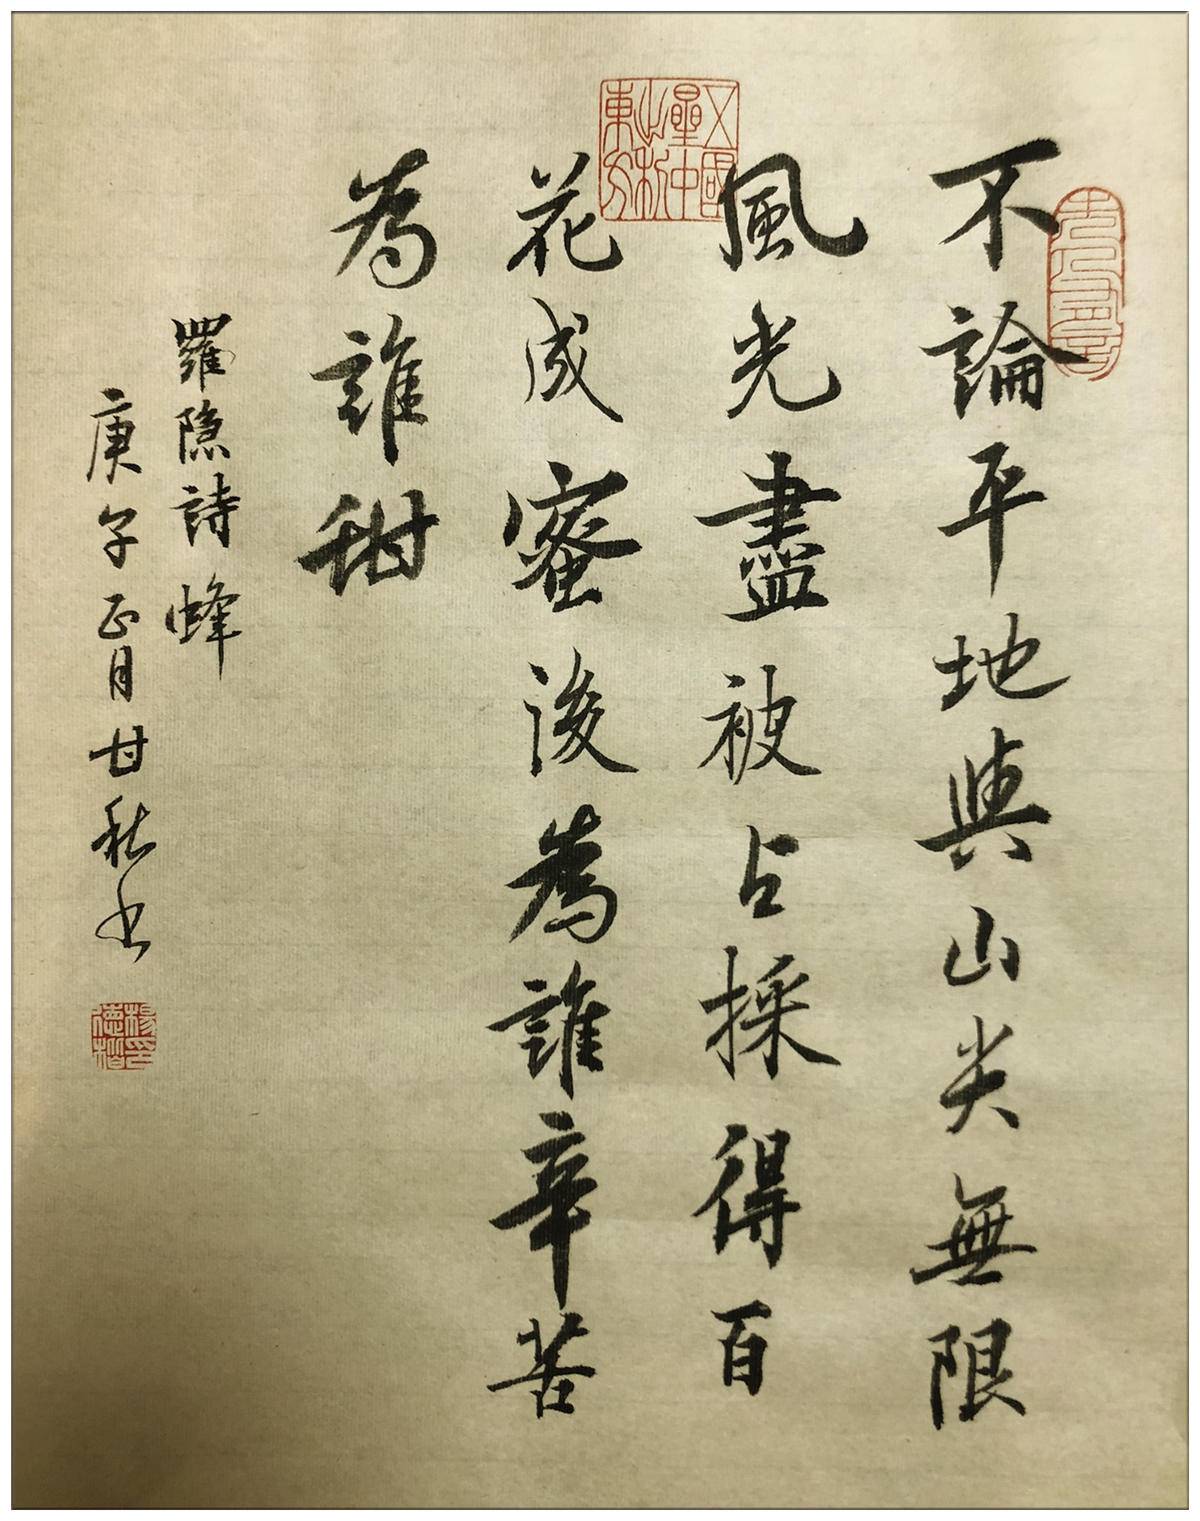 不論平地與山尖無限
風光盡被占採得百
花成蜜後為誰辛苦
為誰甜
羅隐詩蜂
庚子正月廿秋书